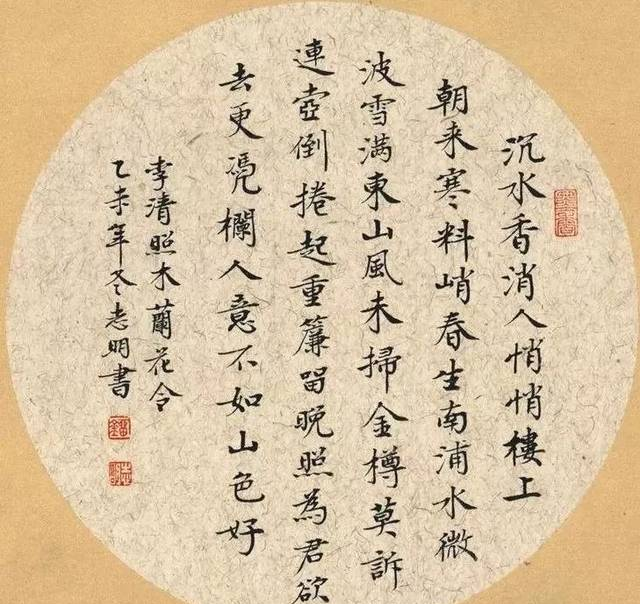 沉水香消人悄悄樓上
朝来寒料峭春生南浦水微
波雪满東山風未掃金樽莫訴
連壺倒捲起重簾留晚照為君欲
去更凭欄人意不如山色好
李清照木蘭花令
乙未年冬志明書